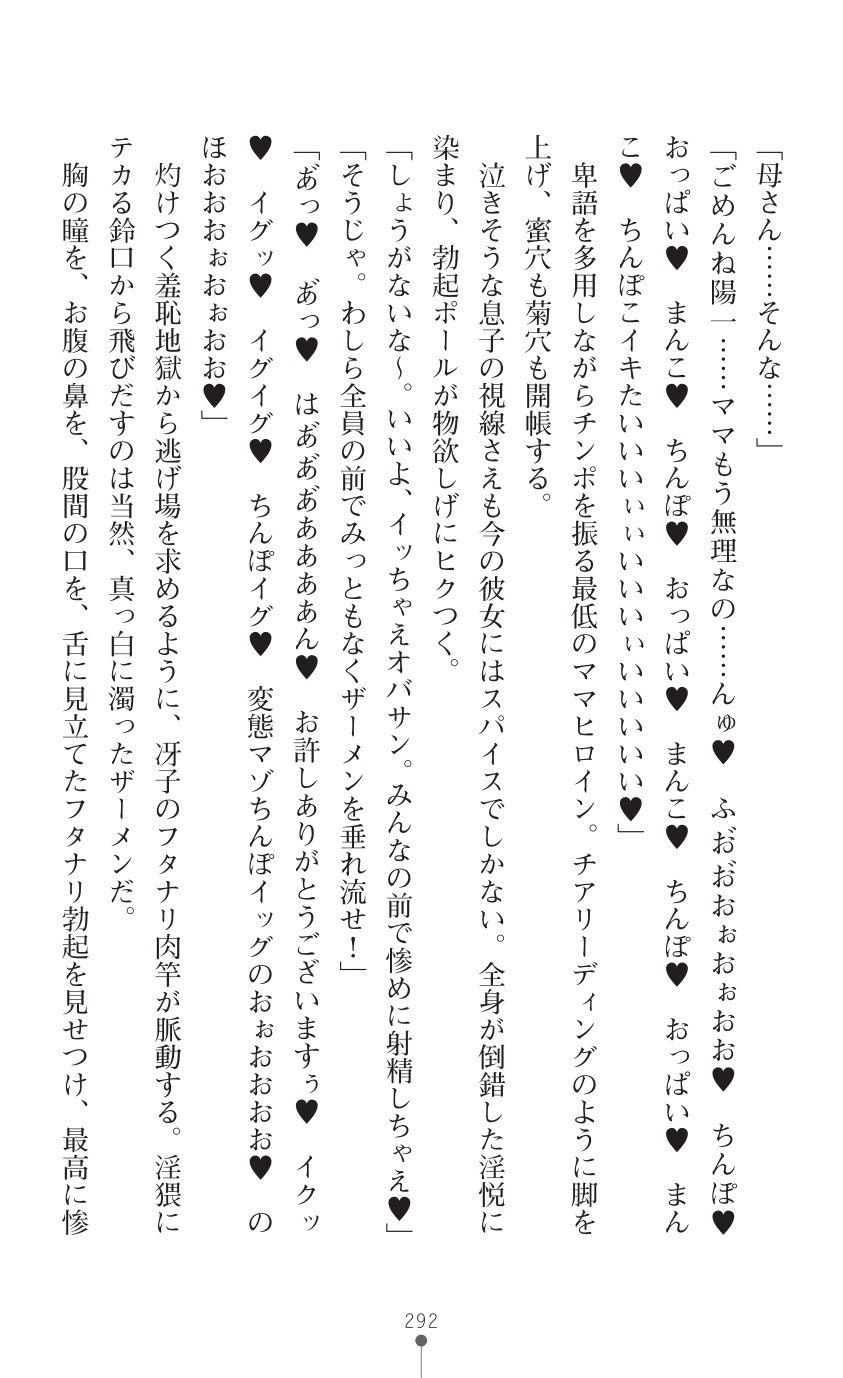 「母さん……そんな……」
「ごめんね陽一……ママもう無理なの……んゅ♥　ふお゙お゙おぉおぉおお♥　ちんぽ♥
おっぱい♥　まんこ♥　ちんぽ♥　おっぱい♥　まんこ♥　ちんぽ♥　おっぱい♥　まん
こ♥　ちんぽこイキたいいいぃぃいいいぃいいいいい♥」
卑語を多用しながらチンポを振る最低のママヒロイン。チアリーディングのように脚を
上げ、蜜穴も菊穴も開帳する。
泣きそうな息子の視線さえも今の彼女にはスパイスでしかない。全身が倒錯した淫悦に
染まり、勃起ポールが物欲しげにヒクつく。
「しょうがないな～。いいよ、イッちゃえオバサン。みんなの前で惨めに射精しちゃえ♥」
「そうじゃ。わしら全員の前でみっともなくザーメンを垂れ流せ！」
「あ゙っ♥　あ゙っ♥　はあ゙あ゙あ゙あああぁん♥　お許しありがとうございますぅ♥　イクッ
♥　イグッ♥　イグイグ♥　ちんぽイグ♥　変態マゾちんぽイッグのおぉおおおお♥　の
ほおおおぉおぉおお♥」
灼けつく羞恥地獄から逃げ場を求めるように、冴子のフタナリ肉竿が脈動する。淫猥に
テカる鈴口から飛びだすのは当然、真っ白に濁ったザーメンだ。
胸の瞳を、お腹の鼻を、股間の口を、舌に見立てたフタナリ勃起を見せつけ、最高に惨
292